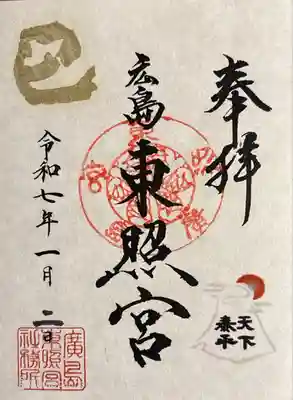 奉拝
天下
泰平
広島
東照宮
巳
令和七年一月二日
廣島
東照宮
社務所